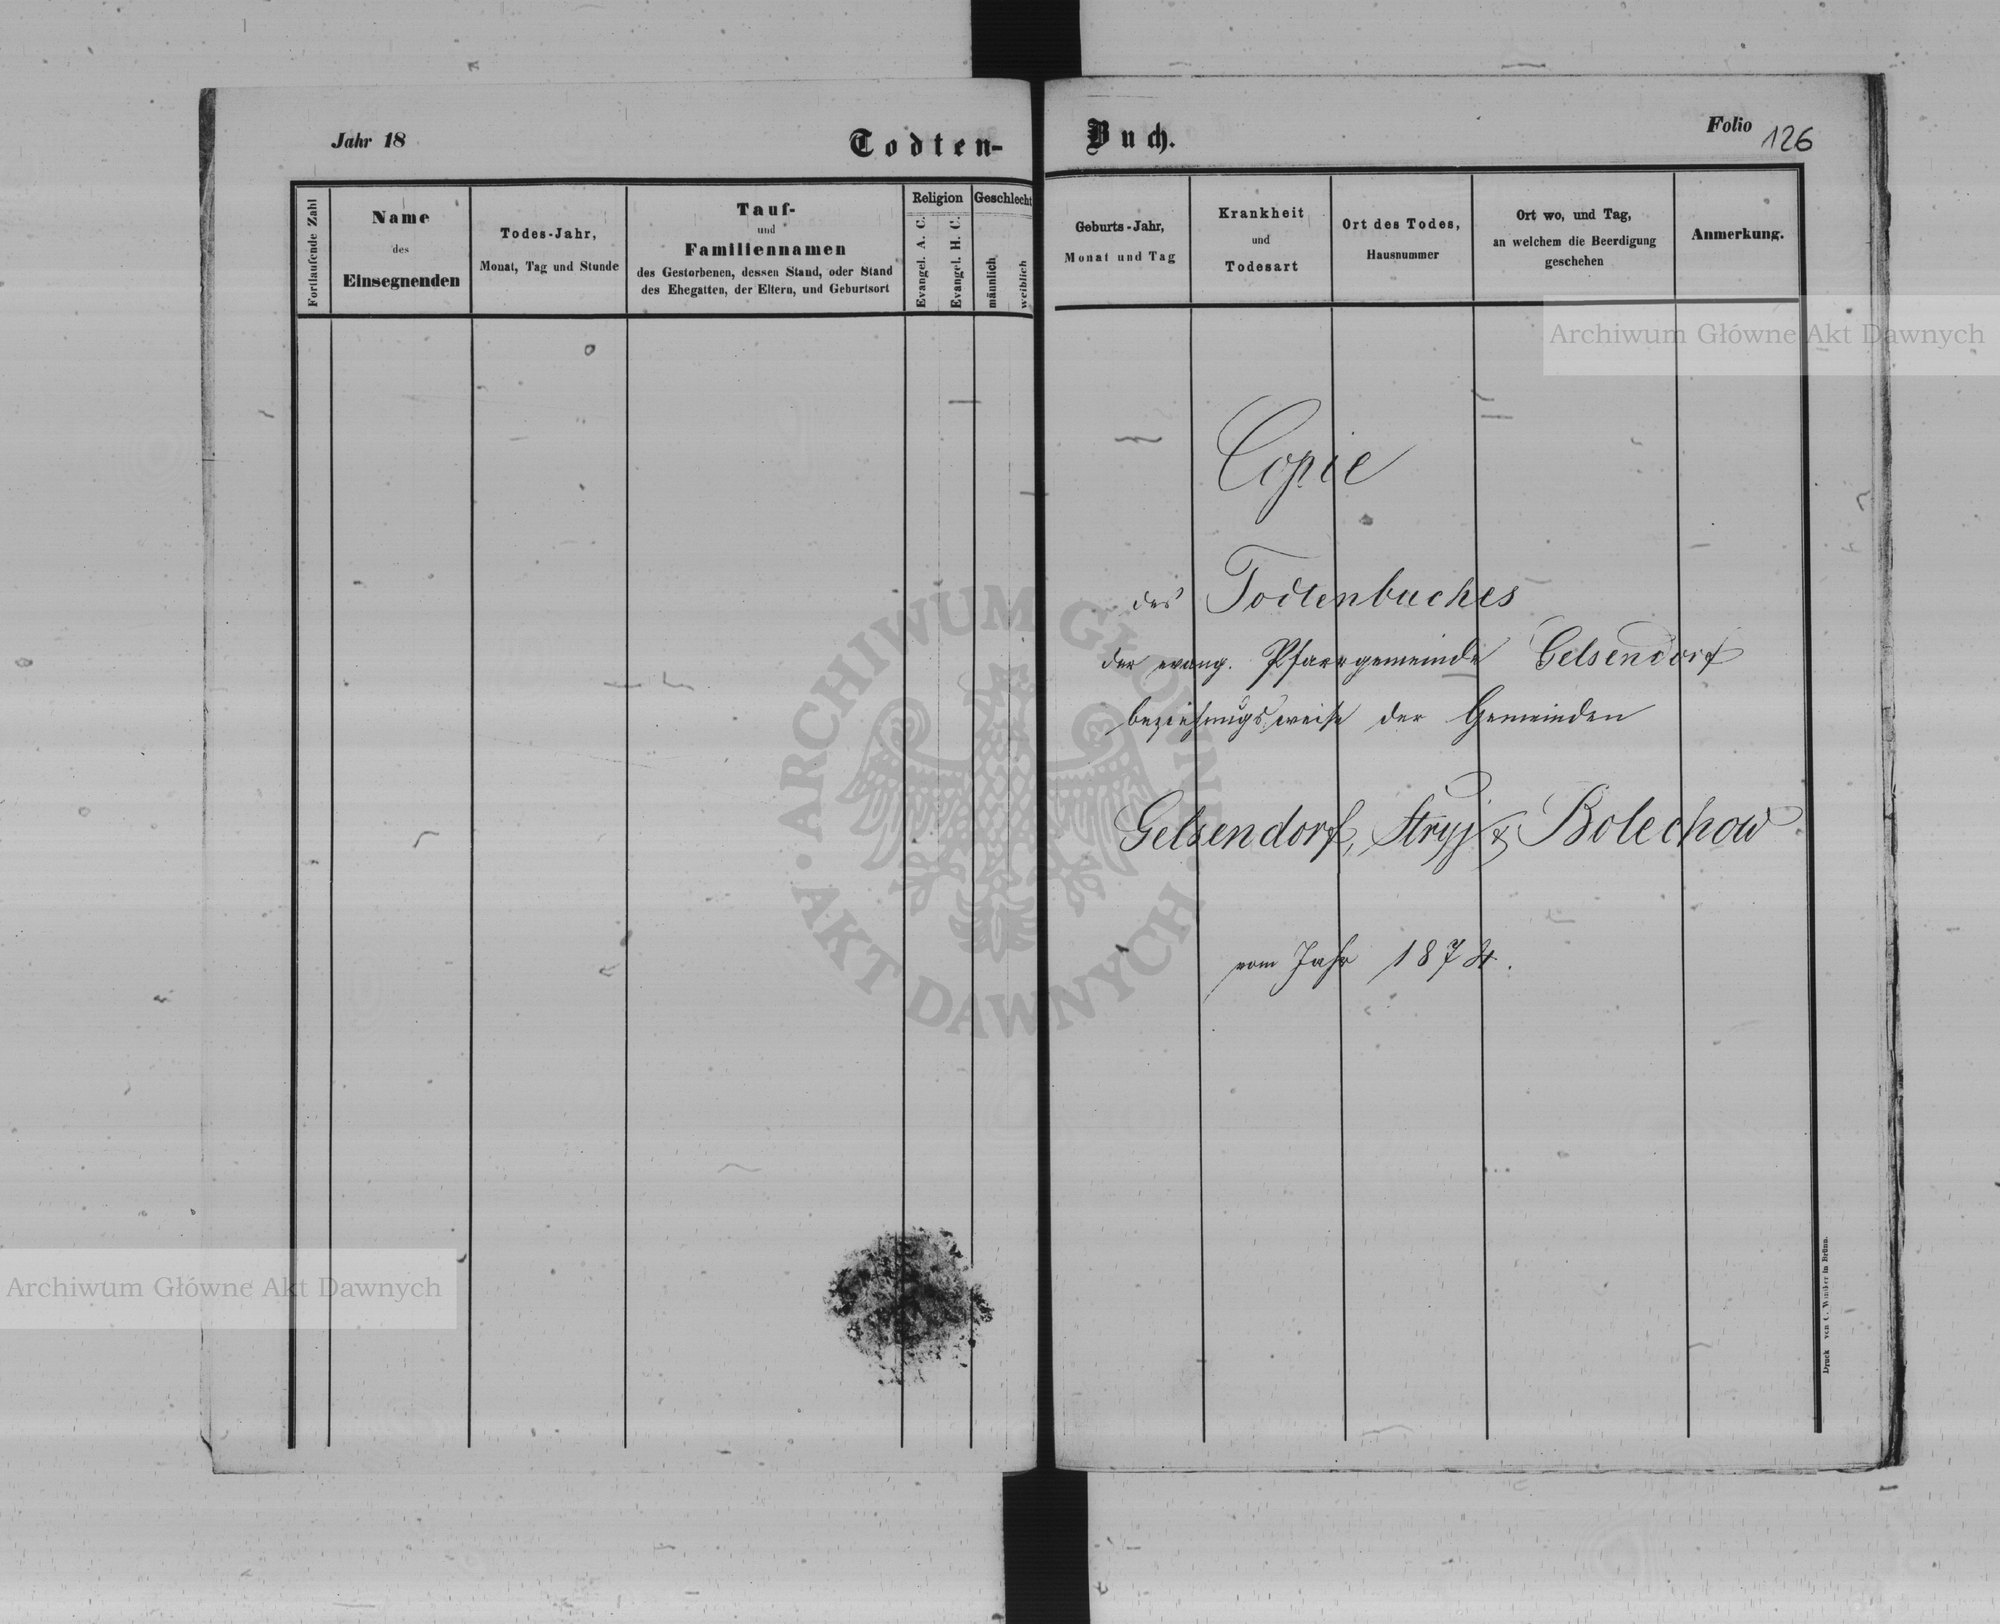 Jahr 18
Todten-
Buch.
Folio 126
Fortlaufende Zahl
Name
des
Einsegnenden
Todes-Jahr,
Monat, Tag und Stunde
Tauf-
und
Familiennamen
des Gestorbenen, dessen Stand, oder Stand
des Ehegatten, der Eltern, und Geburtsort
Religion
Evangel. A. C.
Evangel. H. C.
Geschlecht
männlich
weiblich
Geburts-Jahr,
Monat und Tag
Krankheit
und
Todesart
Ort des Todes,
Hausnummer
Ort wo, und Tag,
an welchem die Beerdigung
geschehen
Anmerkung.
Copie
des Todtenbuches
der evang. Pfarrgemeinde Gelsendorf
beziehungsweise der Gemeinden
Gelsendorf, Stryj & Bolechow
vom Jahr 1874.
Druck von C. Winiker in Brünn.
Archiwum Główne Akt Dawnych
Archiwum Główne Akt Dawnych
ARCHIWUM GŁÓWNE
AKT DAWNYCH